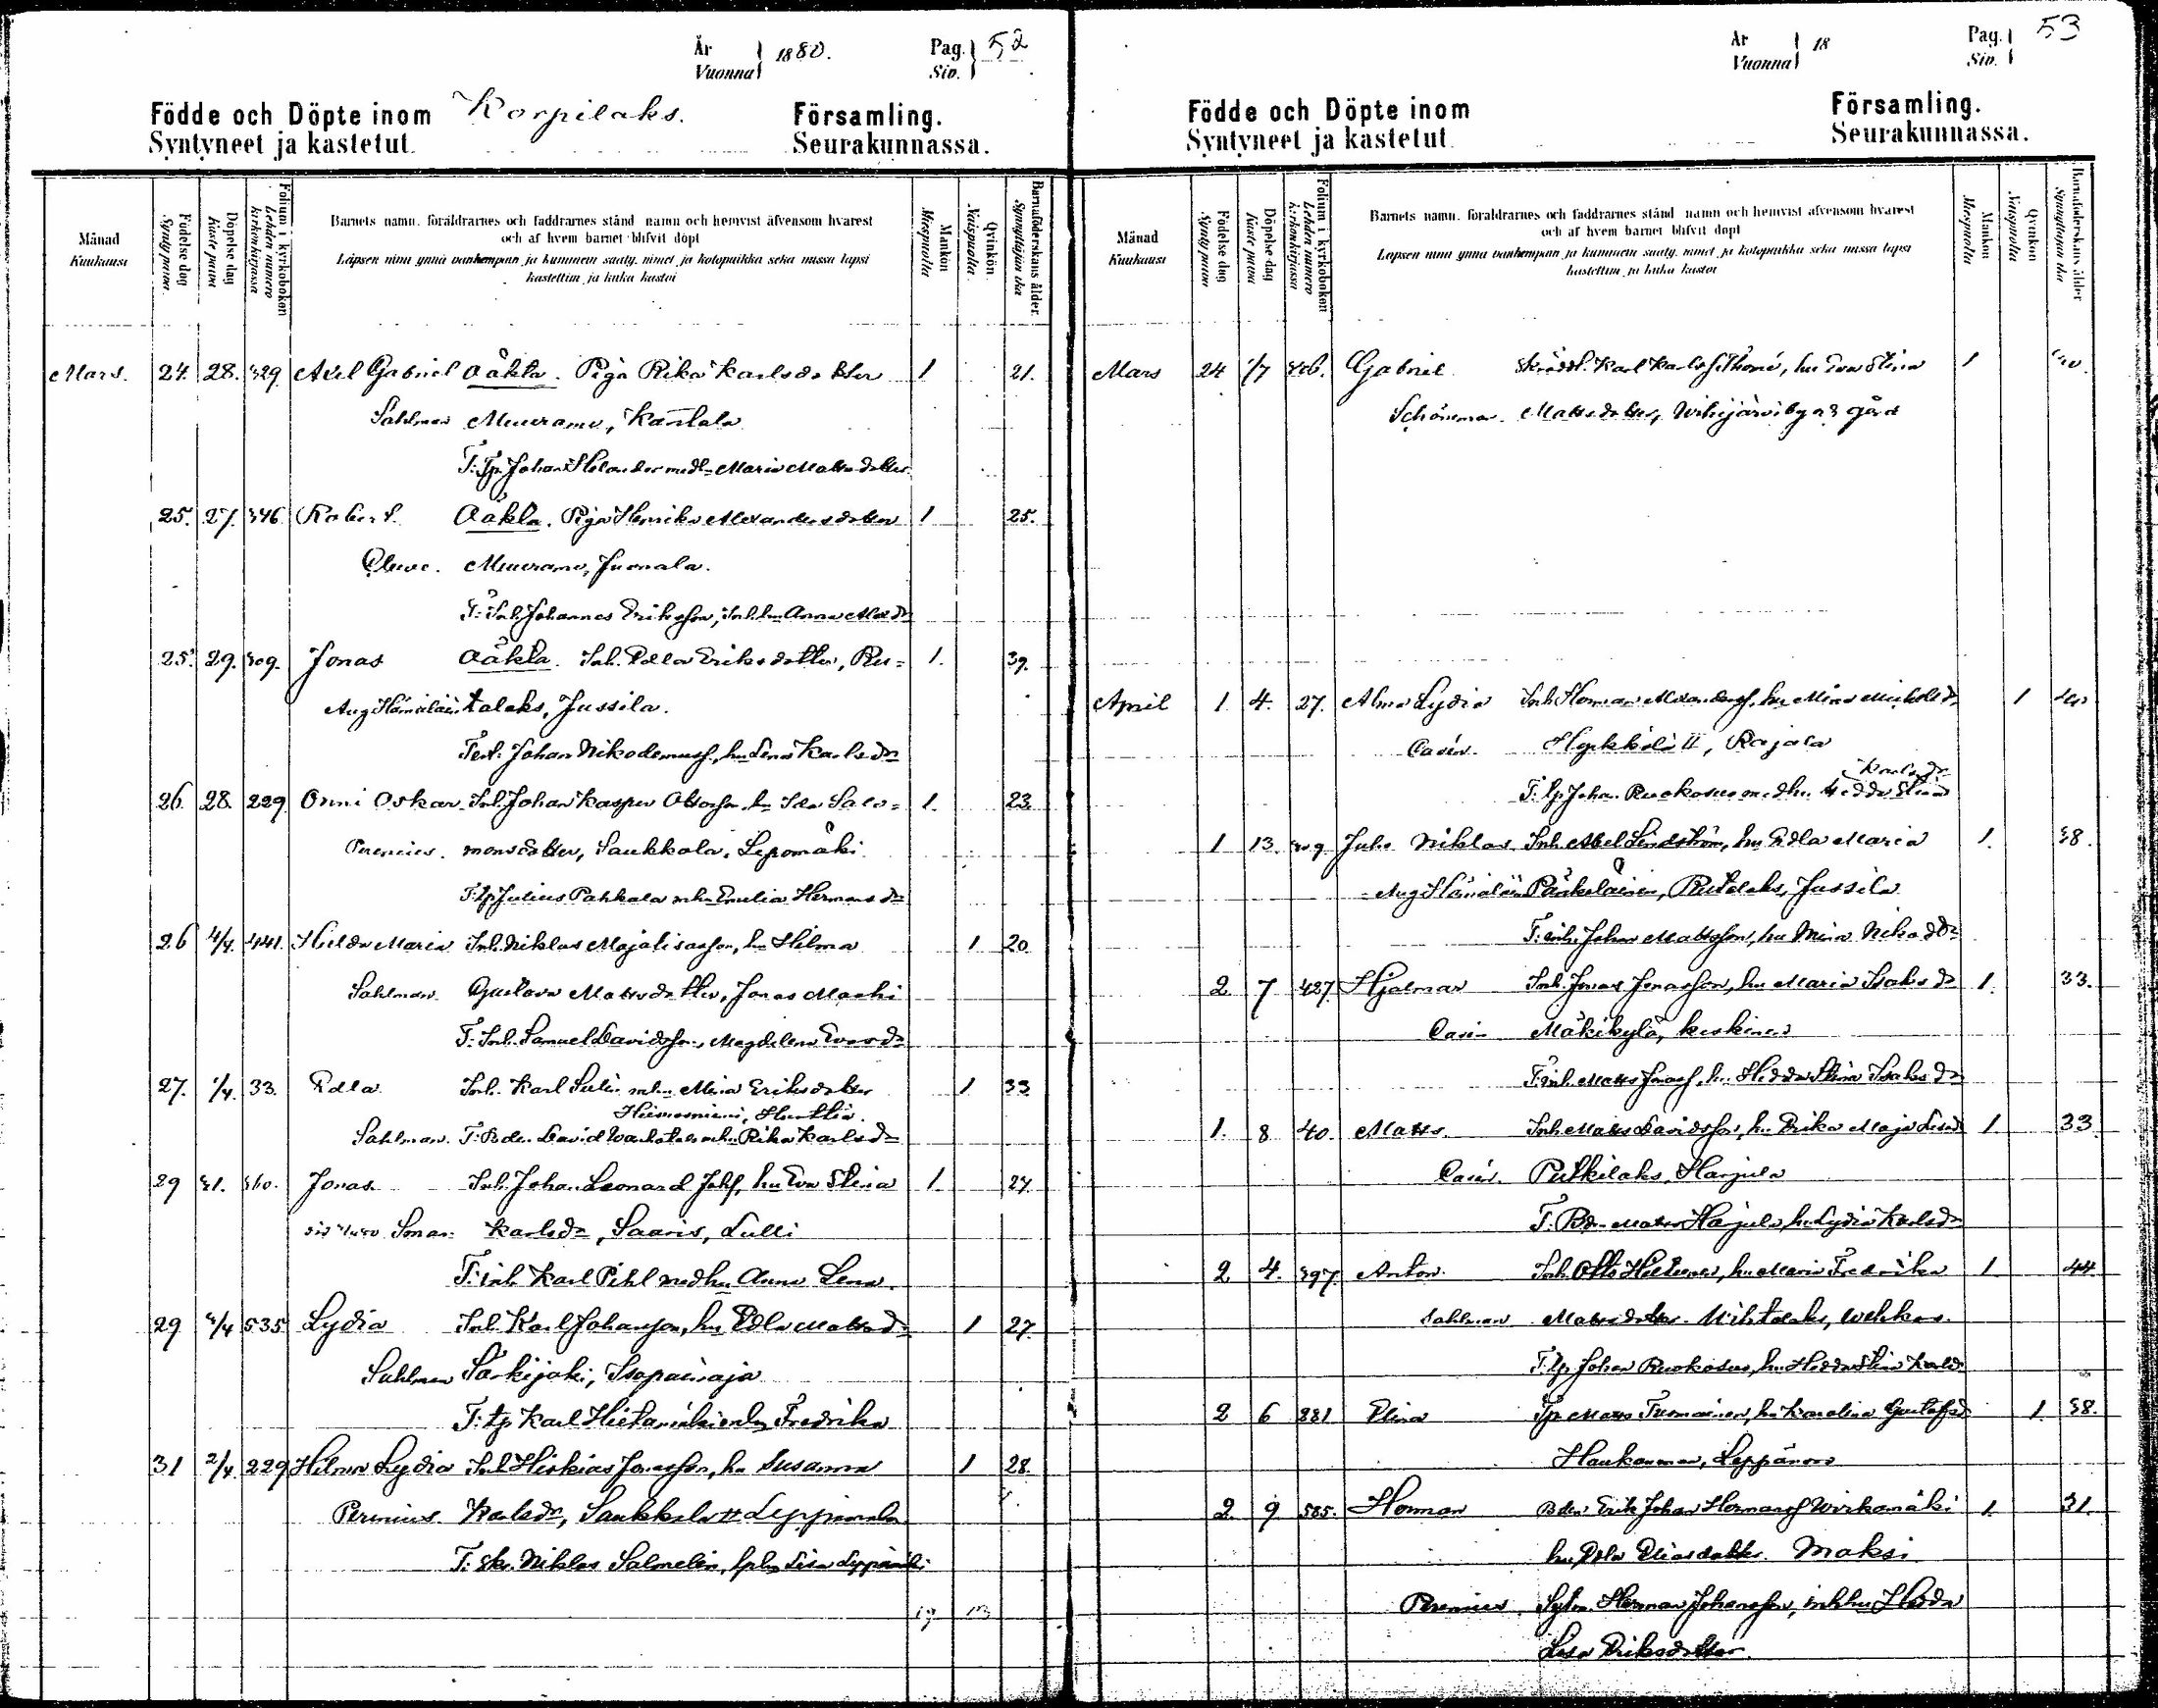 År
Vuonna 1880. Pag. 52
Siv.
Födde och Döpte inom Korpilaks. Församling.
Syntyneet ja kastetut Seurakunnassa.
Månad
Kuukausi
Födelse dag
Syntypäivä
Döpelse dag
Kastepäivä
Folium i kyrkoboken
Lehden numero
kirkonkirjassa
Barnets namn, föräldrarnes och faddrarnes stånd namn och hemvist äfvensom hvarest
och af hvem barnet blifvit döpt
Lapsen nimi ynnä vanhempain ja kummein sääty, nimet ja kotopaikka sekä missä lapsi
kastettiin ja kuka kastoi
Mankön
Miespuolta
Qvinkön
Naispuolta
Barnaföderskans ålder.
Synnyttäjän ikä
Mars. 24. 28. 329 Axel Gabriel Oäkta. Piga Rika Karlsdotter 1 21.
Sahlman Muurame, Kantala
F: Tp. Johan Helander medh Maria Mattsdotter
25. 27. 346 Robert. Oäkta. Piga Henrika Alexandersdotter 1 25.
Cleve. Muurame, Juonala.
F: Inh. Johannes Eriksson, Inh. hu Anna
25. 29. 309. Jonas Oäkta. Inh. Edla Eriksdotter, Ru= 1. 39.
Aug Hämäläin talaks, Jussila.
Test. Johan Nikodemuss., hu Lena Karlsdr
26. 28. 229 Onni Oskar Inh. Johan Kasper Ottosson hu Ida Salo= 1. 23.
Perenius. monsdotter, Saukkola, Lepomäki
F: Tp Julius Pahkala mhu Emilia Hermansdr
26 4/4. 441. Hilda Maria Inh. Niklas Majalisasson, hu Hilma 1 20.
Sahlman. Gustava Mattsdotter, Jonas Maski
F: Inh. Samuel Davidsson, Magdalena Evasdr
27. 1/4. 33. Edla Inh. Karl Sulin mhu Mina Eriksdotter 1 33
Hiironniemi, Hunttia.
Sahlman. F: Bden David mhu Rika Karlsdr
29 31. 360. Jonas Inh. Johan Leonard Johs., hu Eva Stina 1. 24.
Karlsdr, Saaris, Lulli
F: inh. Karl Pihl medhu Anna Lena.
29 4/4 535 Lydia Inh. Karl Johansson, hu Edla Mattsdr 1 27.
Sahlman Särkijoki, Isopainaja
F: tp. Karl Hietamäki mhu Fredrika
31 2/4. 229 Hilma Lydia Inh. Hiskias Jonasson, hu Susanna 1 28.
Perenius. Karlsdr, Saukkola
F: skr. Niklas Salmelin, Lisa
År
Vuonna 18 Pag. 53
Siv.
Födde och Döpte inom Församling.
Syntyneet ja kastetut Seurakunnassa.
Månad
Kuukausi
Födelse dag
Syntypäivä
Döpelse dag
Kastepäivä
Folium i kyrkoboken
Lehden numero
kirkonkirjassa
Barnets namn, föräldrarnes och faddrarnes stånd namn och hemvist äfvensom hvarest
och af hvem barnet blifvit döpt
Lapsen nimi ynnä vanhempain ja kummein sääty, nimet ja kotopaikka sekä missä lapsi
kastettiin ja kuka kastoi
Mankön
Miespuolta
Qvinkön
Naispuolta
Barnaföderskans ålder
Synnyttäjän ikä
Mars 24 Gabriel Skrädd. Karl Karlsson, hu Eva Stina 1
Schöneman. Mattsdotter, Wihijärvi by gård
April 1 4. 27. Alma Lydia Inh. Herman Alexanders., hu Mina 1
Casén. Hyrkkölä II, Rajala
Karlsdr
F: tp Johan Ruokosuo medhu Hedda Stina
1 13. 309. Juho Niklas. Inh. Abel Lindström, hu Edla Maria 1. 38.
Aug Hämäläin Pänkäläinen, Rutalaks, Jussila
F: inh. Johan Mattsson, hu Mina
2 7 487 Hjalmar Inh. Jonas Jonasson, hu Maria Isaksdr 1. 33.
Casén Mäkikylä, Keskinen
F: inh. Matts Jonass., hu Hedda Stina Isaksdr
1. 8 40. Matts. Inh. Matts Davidsson, hu Erika Maja 1. 33
Casén. Putkilaks, Harjula
F: Bdn Matts Harjula, hu Lydia Karlsdr
2 4. 397 Anton. Inh. Otto Hiltunen, hu Maria Fredrika 1 44
Sahlman Mattsdotter. Wihtalaks,
F: tp Johan Ruokosuo, hu Hedda Stina Karlsdr
2 6 881 Elina Tp. Matts Tuomainen, hu Karolina Gustafsdr 1. 38.
Haukanmaa, Leppänen
2. 9 585. Herman Bden Erik Johan Hermanss. Wirkamäki 1. 31.
hu Edla Eliasdotter. Maksi
Perenius. Sytn. Herman Johansson, inh hu Hedda
Lisa Eriksdotter.